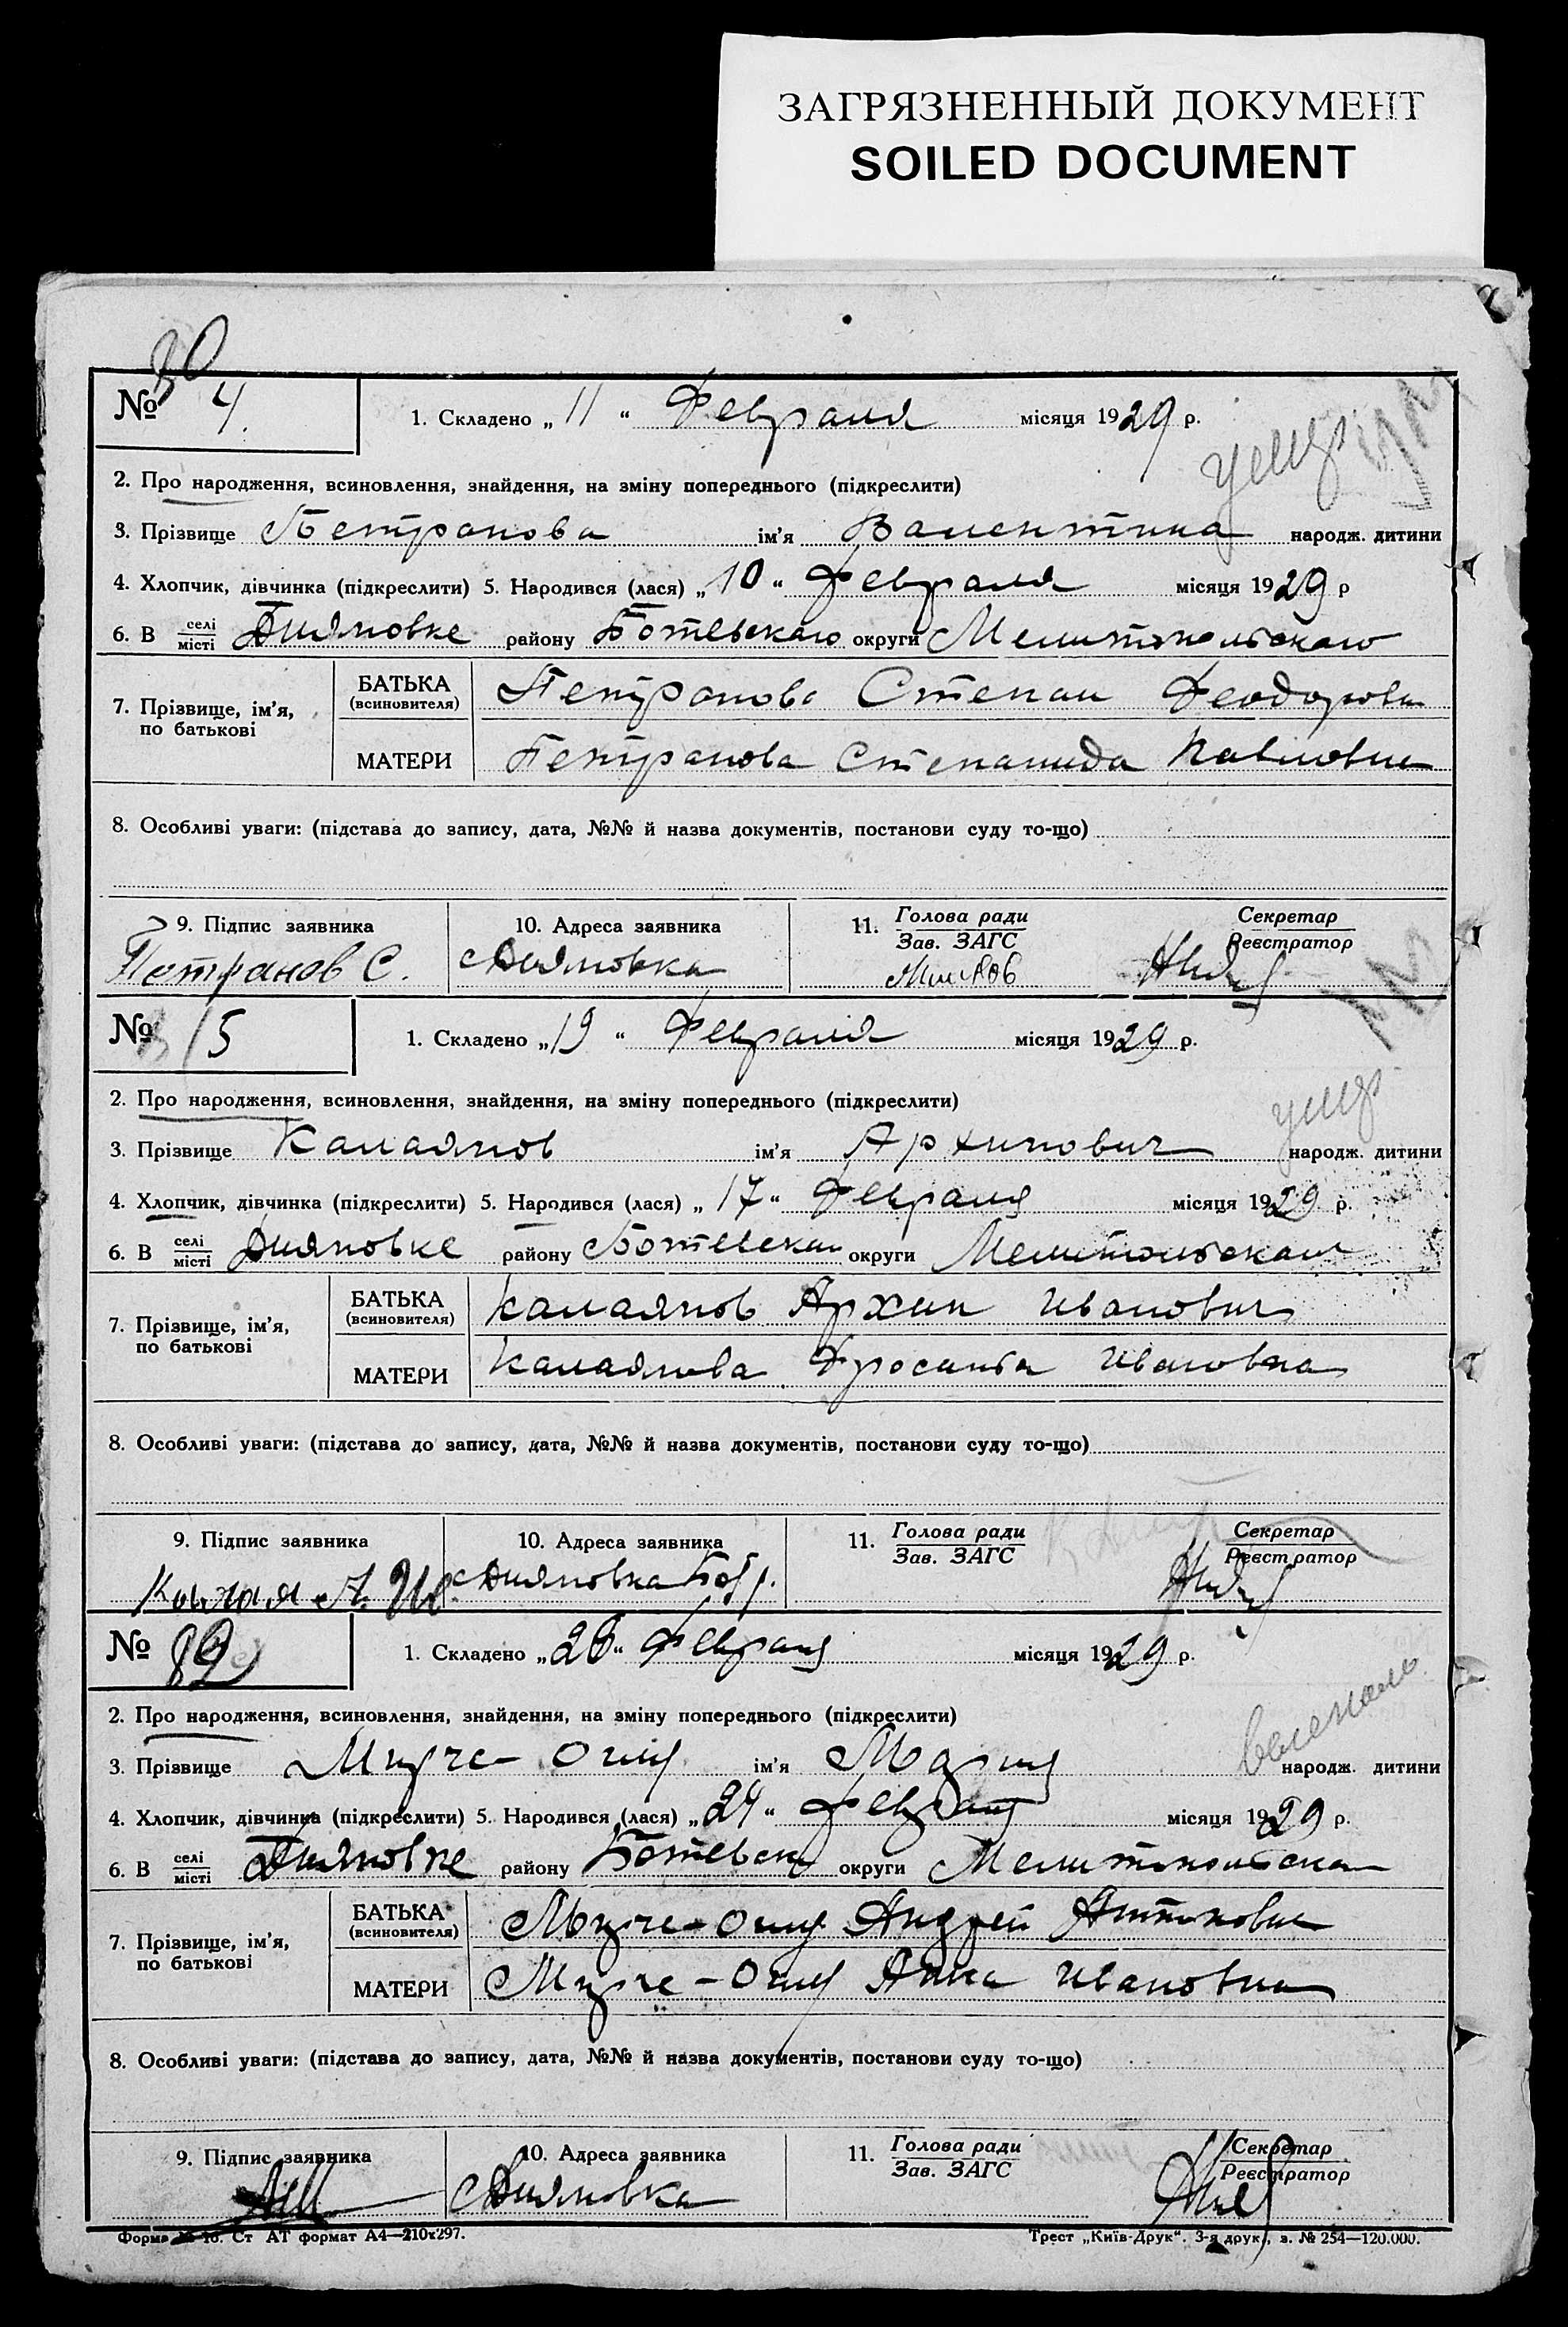 ЗАГРЯЗНЕННЫЙ ДОКУМЕНТ
SOILED DOCUMENT
30
№ 4. 1. Складено „ 11 “ Февраля місяця 1929 р.
2. Про народження, всиновлення, знайдення, на зміну попереднього (підкреслити)
3. Прізвище Петранова ім'я Валентина народж. дитини
4. Хлопчик, дівчинка (підкреслити) 5. Народився (лася) „ 10 “ Февраля місяця 1929 р
6. В селі місті Дияновке району Ботевскаго округи Мелитопольскаго
7. Прізвище, ім'я, по батькові
БАТЬКА (всиновителя) Петранова Степан Феодоров
МАТЕРИ Петранова Степанида Павловна
8. Особливі уваги: (підстава до запису, дата, №№ й назва документів, постанови суду то-що)
9. Підпис заявника 10. Адреса заявника 11. Голова ради Зав. ЗАГС Секретар Реєстратор
Петранов С. Дияновка
№ 5 1. Складено „ 19 “ Февраля місяця 1929 р.
2. Про народження, всиновлення, знайдення, на зміну попереднього (підкреслити)
3. Прізвище Калаянов ім'я Архипович народж. дитини
4. Хлопчик, дівчинка (підкреслити) 5. Народився (лася) „ 17 “ Февраля місяця 1929 р.
6. В селі місті Дияновке району Ботевскаго округи Мелитопольскаго
7. Прізвище, ім'я, по батькові
БАТЬКА (всиновителя) Калаянов Архип Иванович
МАТЕРИ Калаянова Ивановна
8. Особливі уваги: (підстава до запису, дата, №№ й назва документів, постанови суду то-що)
9. Підпис заявника 10. Адреса заявника 11. Голова ради Зав. ЗАГС Секретар Реєстратор
Дияновка
№ 1. Складено „ 28 “ Февраля місяця 1929 р.
2. Про народження, всиновлення, знайдення, на зміну попереднього (підкреслити)
3. Прізвище ім'я Мария народж. дитини
4. Хлопчик, дівчинка (підкреслити) 5. Народився (лася) „ 24 “ Февраля місяця 1929 р.
6. В селі місті Дияновке району Ботевск округи Мелитопольска
7. Прізвище, ім'я, по батькові
БАТЬКА (всиновителя) Андрей
МАТЕРИ Анна Ивановна
8. Особливі уваги: (підстава до запису, дата, №№ й назва документів, постанови суду то-що)
9. Підпис заявника 10. Адреса заявника 11. Голова ради Зав. ЗАГС Секретар Реєстратор
Дияновка
Форма № 16. Ст АТ формат А4—210х297. Трест „Київ-Друк“. 3-я друк., з. № 254—120.000.